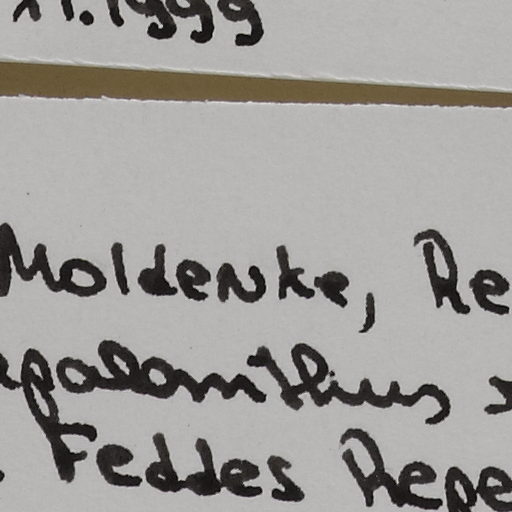 11.1999
Moldenke, Re
epalanthus
. Feddes Repe